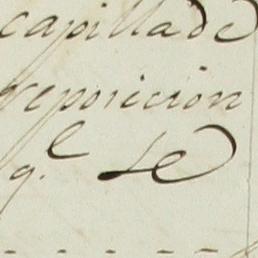 capilla de
reposicion
q.e se